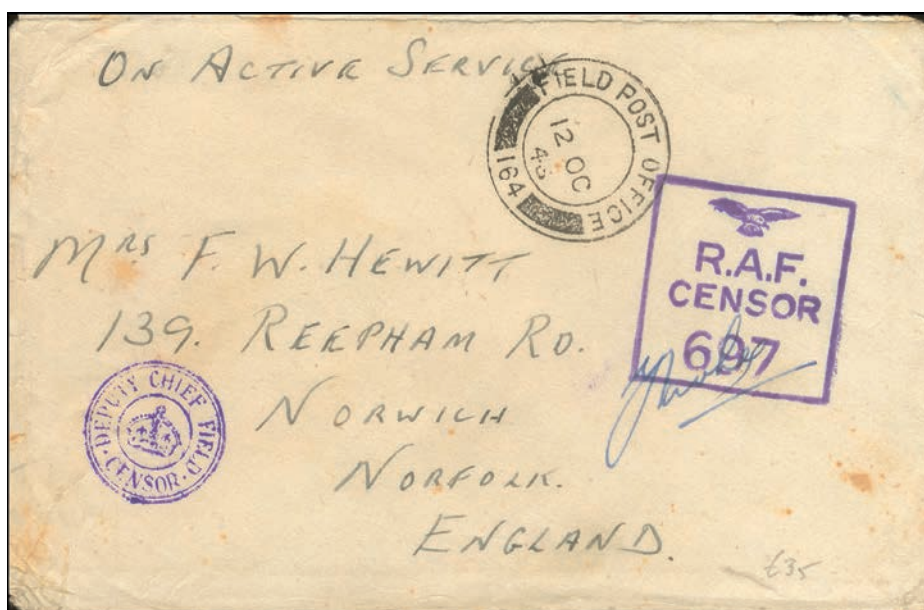 ON ACTIVE SERVICE
FIELD POST OFFICE
164
12 OC
43
R.A.F.
CENSOR
697
MRS F. W. HEWITT
139. REEPHAM RD.
NORWICH
NORFOLK.
ENGLAND.
DEPUTY CHIEF FIELD
· CENSOR ·
£35